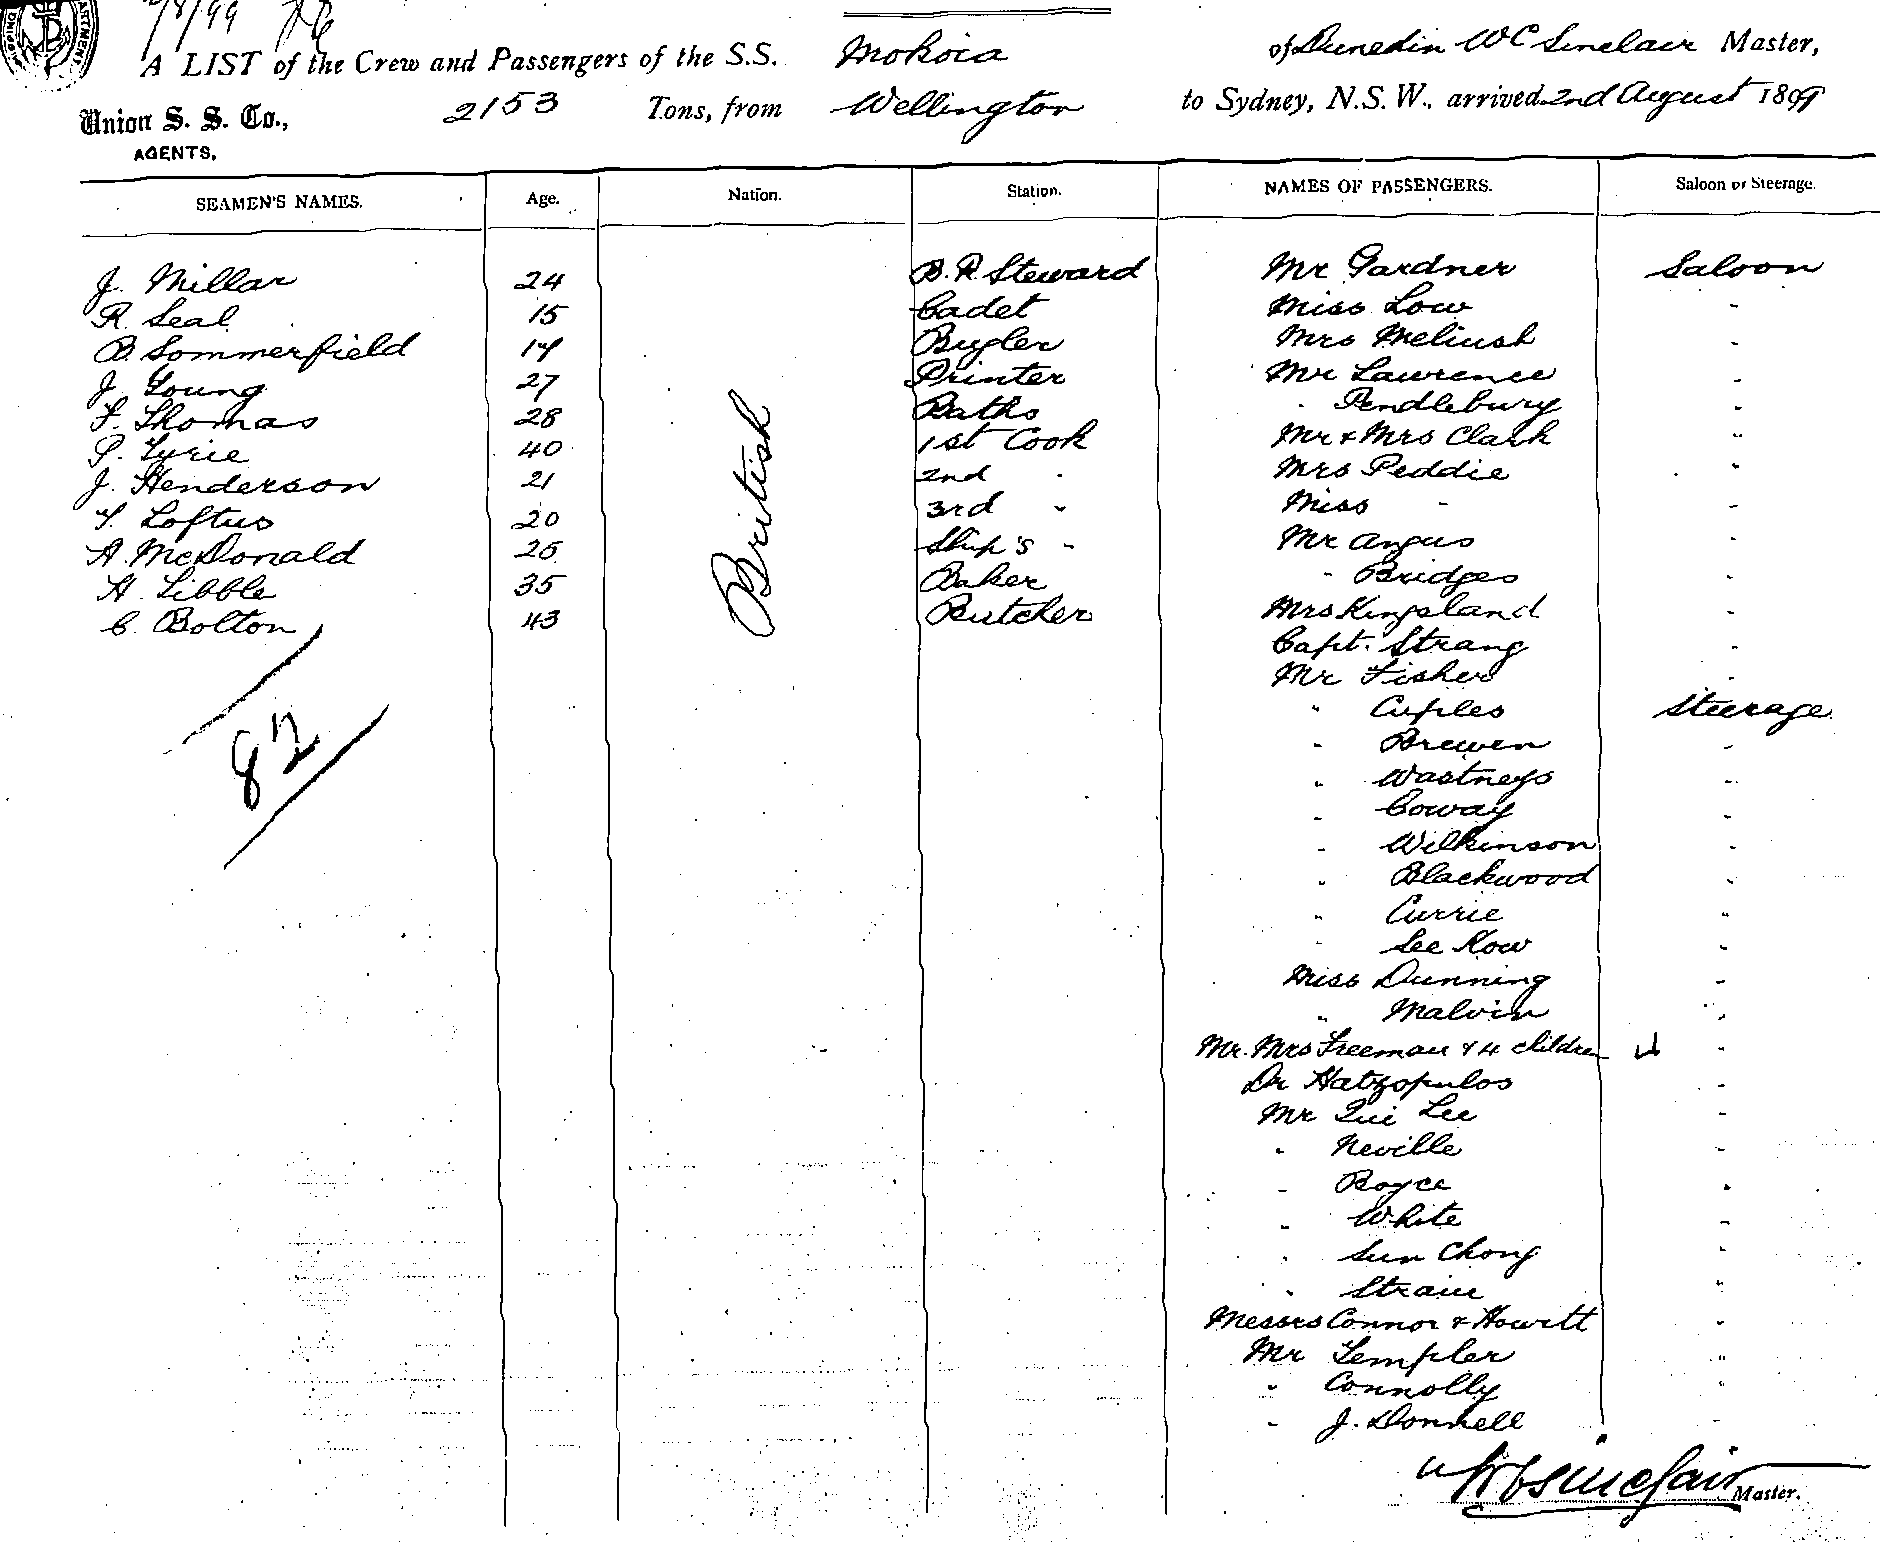 2/8/99
A LIST of the Crew and Passengers of the S.S. Mokoia of Dunedin W C Sinclair Master,
Union S. S. Co., 2153 Tons, from Wellington to Sydney, N.S.W., arrived 2nd August 1899
AGENTS.
SEAMEN'S NAMES. Age. Nation. Station. NAMES OF PASSENGERS. Saloon or Steerage.
J. Millar 24 British B. R. Steward Mr Gardner Saloon
R. Seal 15 Cadet Miss Low "
B. Sommerfield 14 Bugler Mrs Meliush "
J. Young 27 Printer Mr Lawrence "
F. Thomas 28 Baths " Pendlebury "
P. Lyrie 40 1st Cook Mr & Mrs Clark "
J. Henderson 21 2nd " Mrs Peddie "
T. Loftus 20 3rd " Miss " "
A. McDonald 25 Ship's " Mr Angus "
H. Libble 35 Baker " Bridges "
C. Bolton 43 Butcher Mrs Kingsland "
Capt. Strang "
Mr Fisher "
82 " Cuples Steerage
" Brewen "
" Wastneys "
" Coway "
" Wilkinson "
" Blackwood "
" Currie "
" See Kow "
Miss Dunning "
" Malvin "
Mr. Mrs Freeman & 4 children "
Dr Hatzopulos "
Mr Qui Lee "
" Neville "
" Boyce "
" White "
" Sun Chong "
" Strain "
Messrs Connor & Howitt "
Mr Templer "
" Connolly "
" J. Donnell "
W C Sinclair Master.